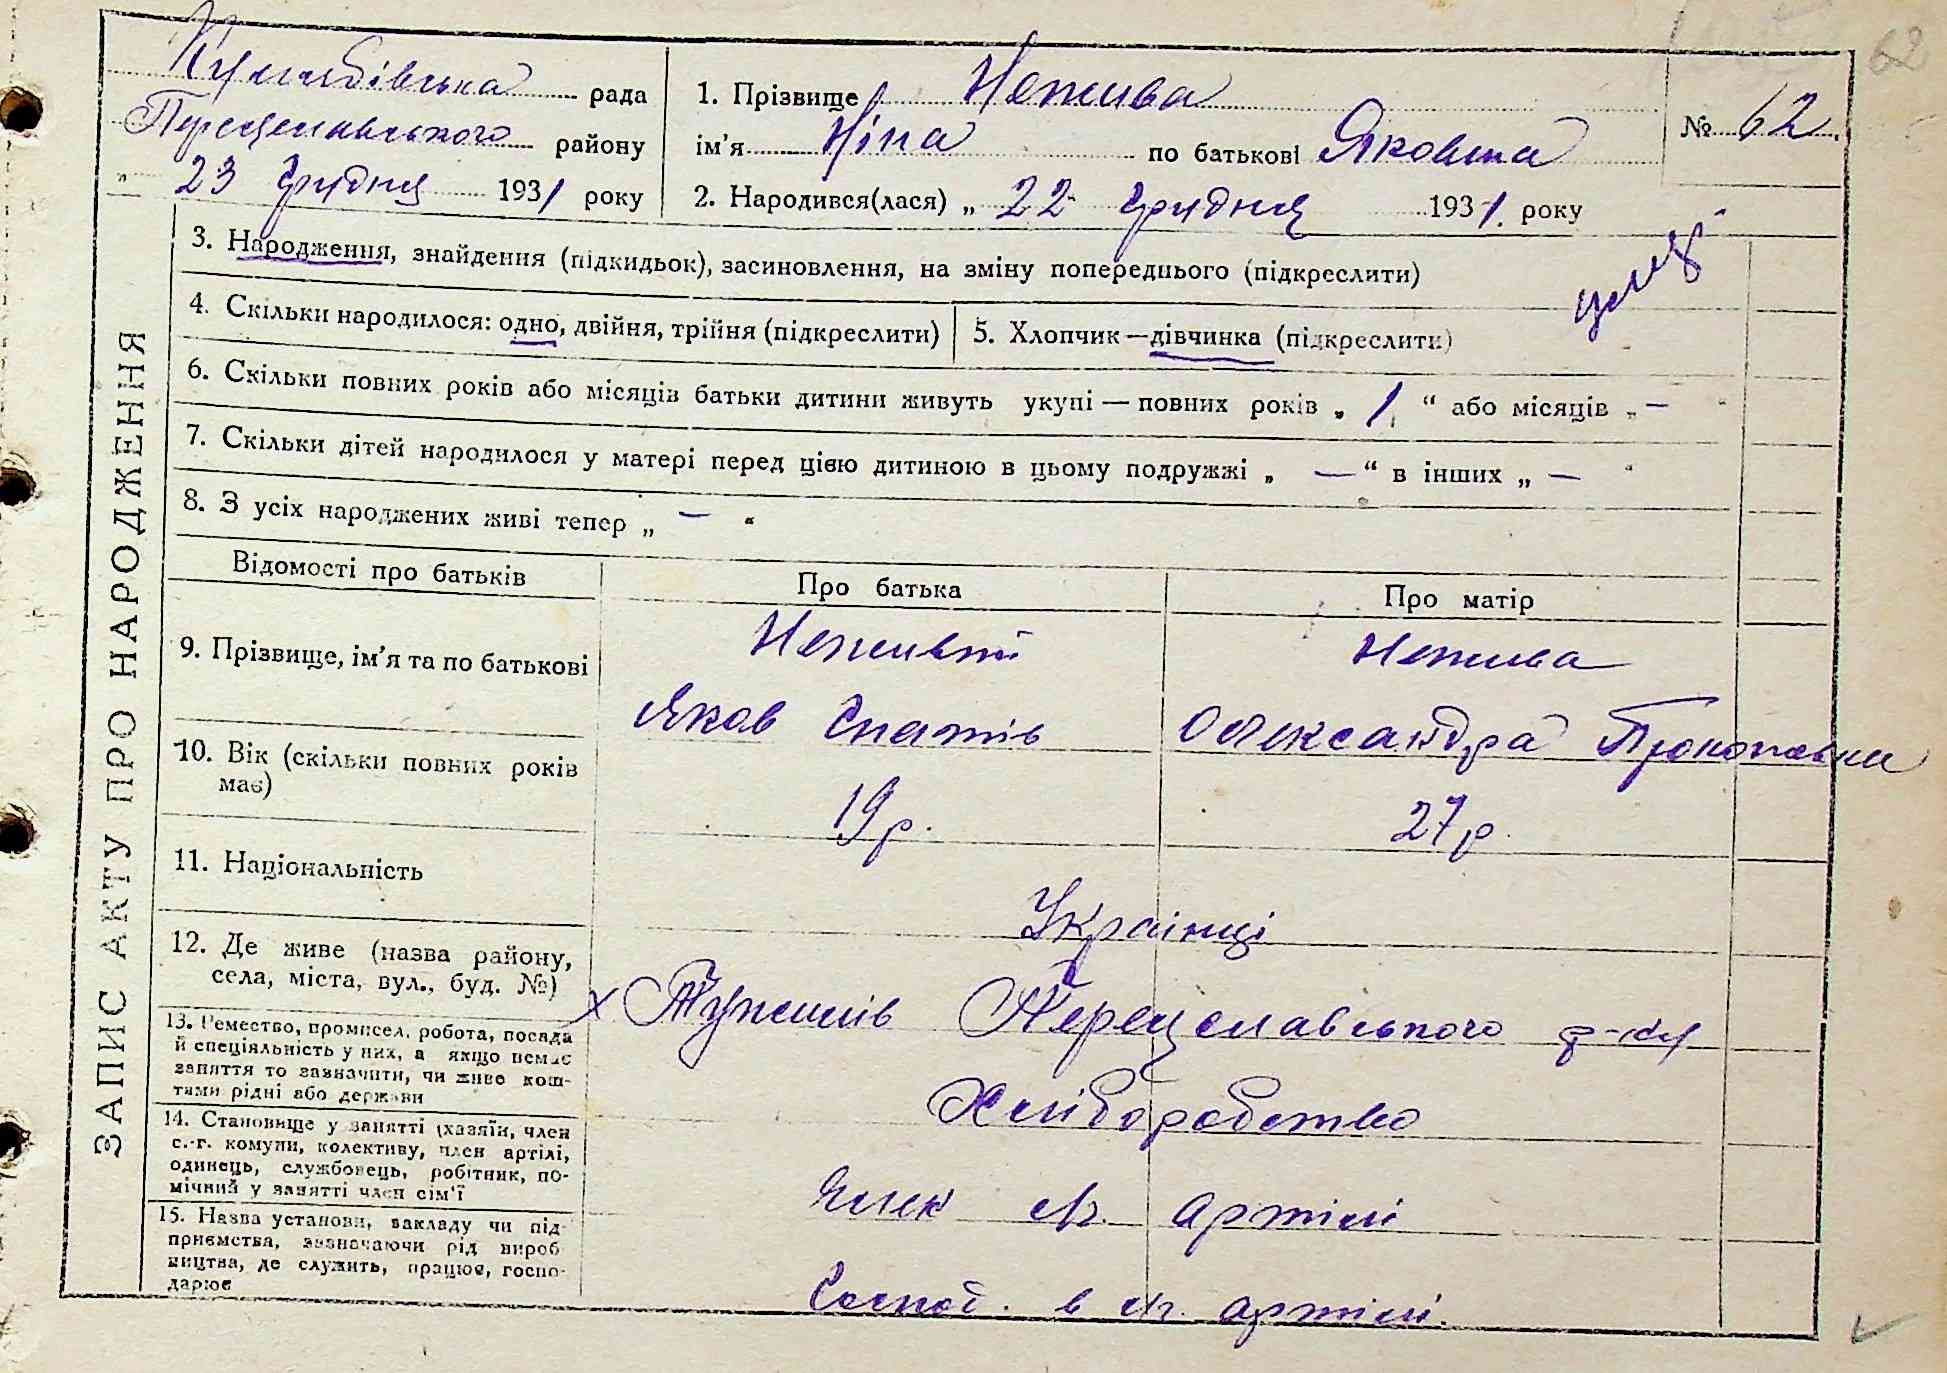 62
рада
1. Прізвище Нежива
№ 62
Переяславського району
ім'я Ніна по батькові Яковна
„ 23 Грудня 1931 року
2. Народився(лася) „ 22 Грудня 1931. року
3. Народження, знайдення (підкидьок), засиновлення, на зміну попереднього (підкреслити)
4. Скільки народилося: одно, двійня, трійня (підкреслити)
5. Хлопчик—дівчинка (підкреслити)
6. Скільки повних років або місяців батьки дитини живуть укупі — повних років „ 1 “ або місяців „ — “
7. Скільки дітей народилося у матері перед цією дитиною в цьому подружжі „ — “ в інших „ — “
8. З усіх народжених живі тепер „ — “
ЗАПИС АКТУ ПРО НАРОДЖЕННЯ
Відомості про батьків
Про батька
Про матір
9. Прізвище, ім'я та по батькові
Неживий
Яков
Нежива
Олександра Прокопавна
10. Вік (скільки повних років
має)
19 р.
27 р.
11. Національність
Українці
12. Де живе (назва району,
села, міста, вул., буд. №)
х Переяславського р-ну
13. Ремество, промисел, робота, посада
й спеціяльність у них, а якщо немає
заняття то зазначити, чи живе кош-
тами рідні або держави
Хліборобство
14. Становище у занятті (хазяїн, член
с.-г. комуни, колективу, член артілі,
одинець, службовець, робітник, по-
мічний у занятті член сім'ї
член с/г. артілі
15. Назва установи, закладу чи під-
приємства, зазначаючи рід вироб
ництва, де служить, працює, госпо-
дарює
Господ. в с/г. артілі.